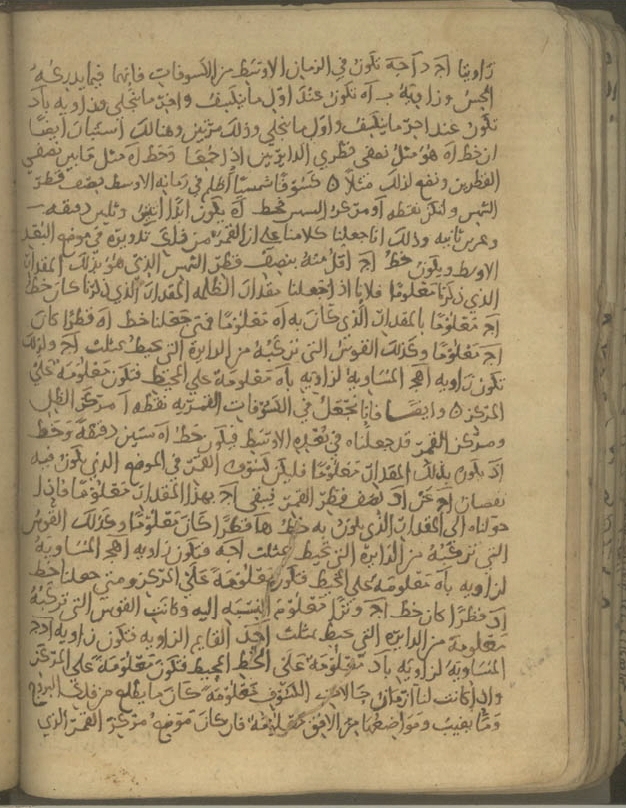 زاويتا اجد اجه تكون في الزمان الاوسط من الكسوفات فانها فيما يدركه
الحس وزاوية ب اه تكون عند اول ما ينكسف واخر ما ينجلي وزاوية باد
تكون عند اخر ما ينكسف واول ما ينجلي وذلك مرتين وهنالك استبان ايضا
ان خط اه هو مثل نصفي قطري الدايرتين اذا جمعا وخط اد مثل ما بين نصفي
القطرين ونضع لذلك مثلا ه كسوفا شمسيا اظلم في زمانه الاوسط نصف قطر
الشمس ولتكن نقطة ا مركز الشمس فخط اه يكون ابدا اثنين وثلثين دقيقه
وعشرين ثانيه وذلك انا جعلنا كلامنا على ان القمر من فلك تدويره في موضع البعد
الاوسط ويكون خط اج اقل منه بنصف قطر الشمس الذي هو بذلك المقدار
الذي ذكرنا معلوما فلانا اذا جعلنا مقدار الظلمه المقدار الذي ذكرنا كان خط
اج معلوما بالمقدار الذي كان به اه معلوما فمتى جعلنا خط اه قطرا كان
اج معلوما وكذلك القوس التي تركبه من الدايرة التي تحيط بمثلث اجه ولذلك
تكون زاويه اهج المساويه لزاويه باه معلومة على المحيط فتكون معلومه على
المركز ه وايضا فانا نجعل في الكسوفات القمريه نقطه ا مركز الظل
ومركز القمر قد جعلناه في بعده الاوسط فيكون خط اه ستين دقيقة وخط
اد يكون بذلك المقدار معلوما فليكن كسوف القمر في الموضع الذي يكون فيه
نقصان اج عن اد نصف قطر القمر فيبقى اج بهذا المقدار معلوما فاذا
حولناه الى المقدار الذي يكون به خط ها قطرا كان معلوما وكذلك القوس
التي تركبه من الدايرة التي تحيط بمثلث اجه فتكون زاويه اهج المساويه
لزاويه باه معلومة على المحيط فتكون معلومة على المركز ومتى جعلنا خط
اد قطرا كان خط اج وترا معلوم النسبه اليه وكانت القوس التي تركبه
معلومة من الدايرة التي تحيط بمثلث اجد القايم الزاويه فتكون زاويه ادج
المساويه لزاويه باد معلومة على الخط المحيط فتكون معلومة على المركز
واذا كانت لنا ازمان حالات الكسوف معلومة كان ما يطلع من فلك البروج
وما يغيب ومواضعهما من الافق معلومة فان كان موضع مركز القمر الذي